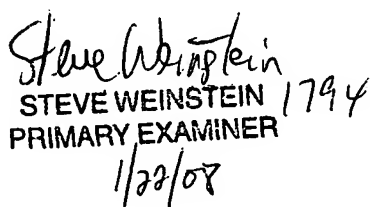 Steve Weinstein
STEVE WEINSTEIN 1794
PRIMARY EXAMINER
1/22/08